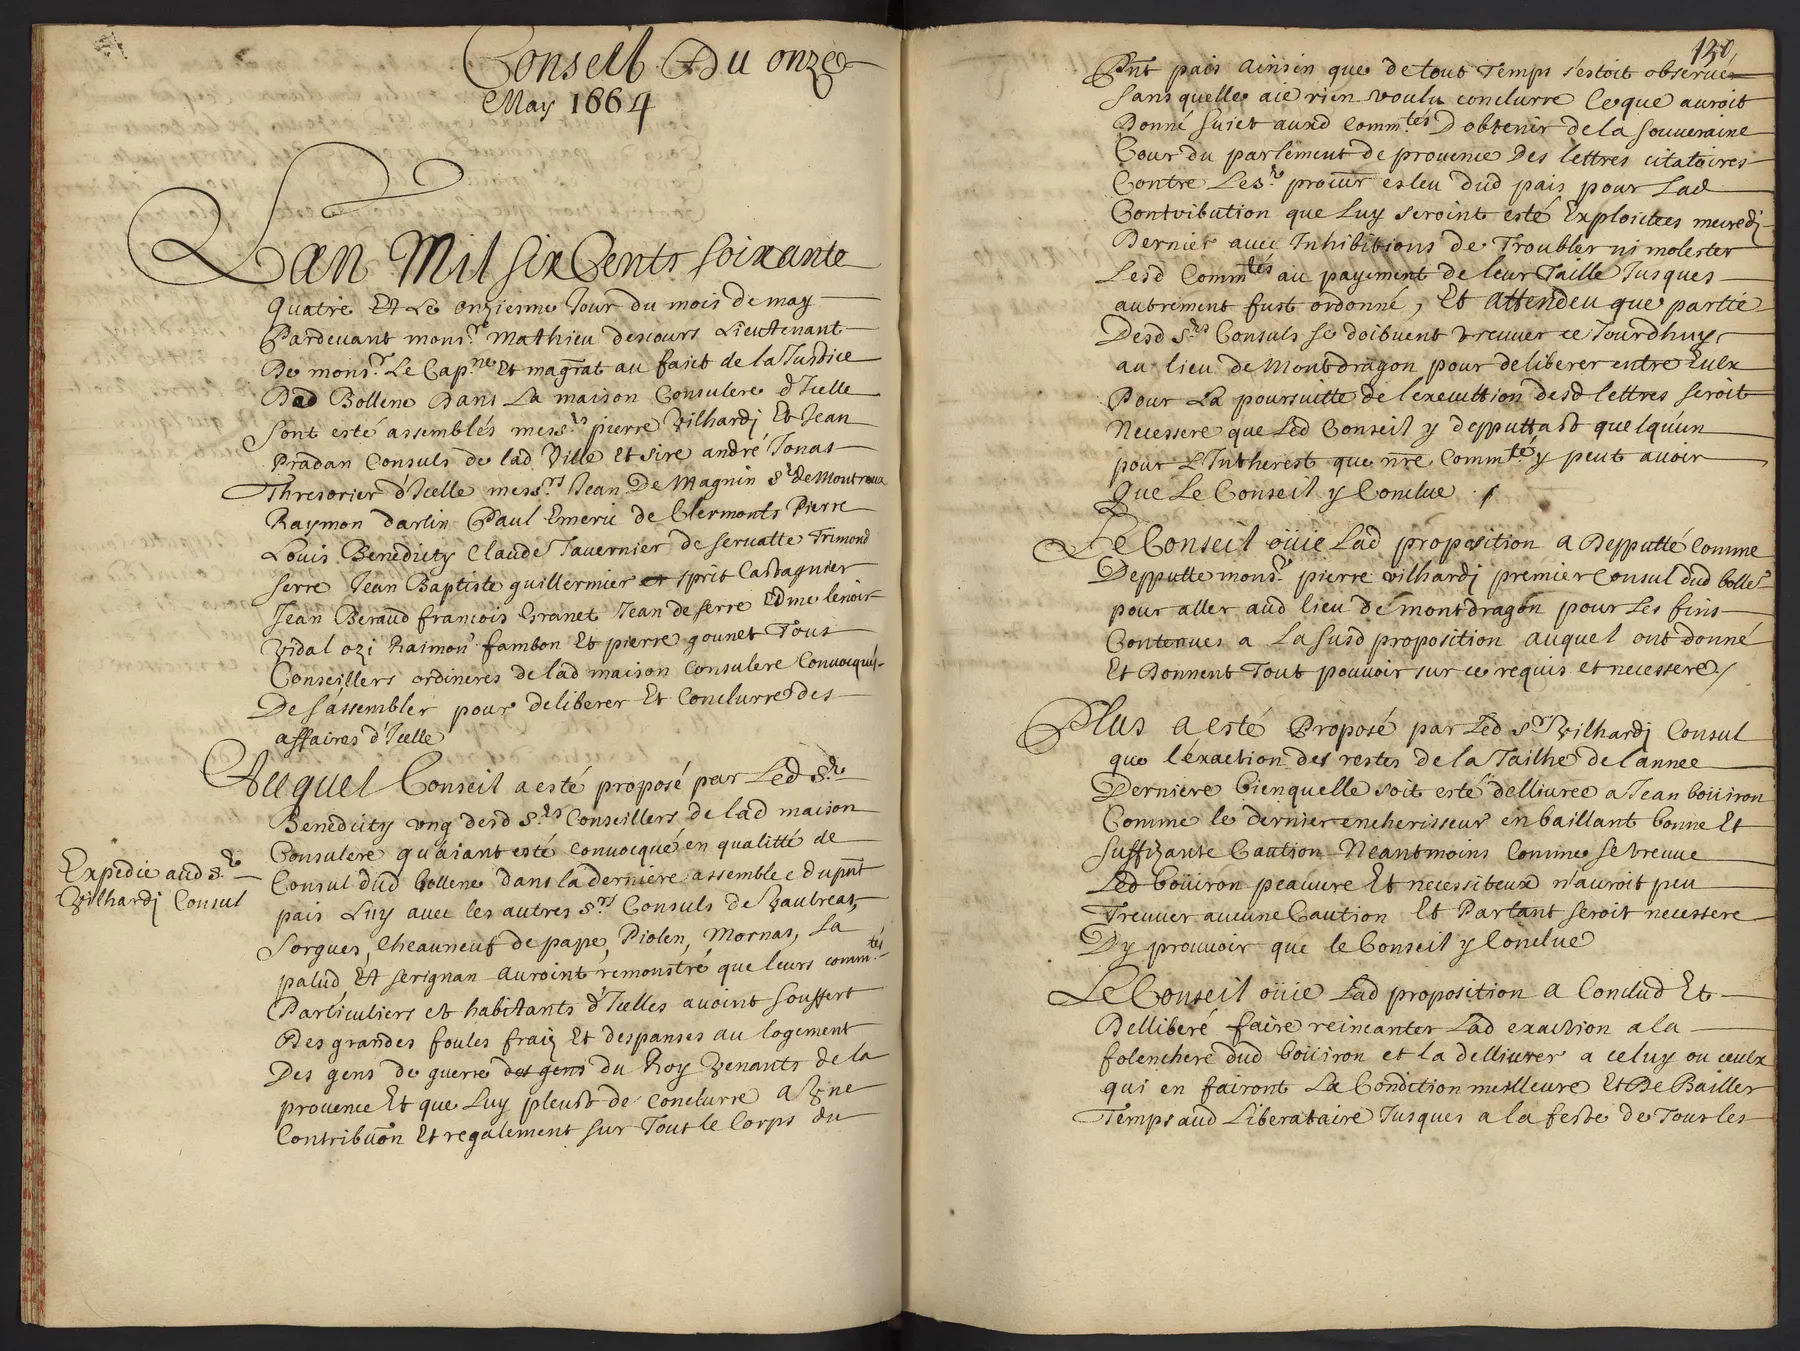 Conseil Du onze
May 1664
Lan Mil six Cents soixante
quatre Et Le onziesme Jour du mois de may
Pardevant mons.r Mathieu descours Lieutenant
De mons.r Le Cap.ne Et magrat au faict de la Justice
Dud Bollene Dans La maison Consulere d'Icelle
sont esté assemblés mess.rs pierre Vilhardj Et Jean
Pradan Consuls de lad Ville Et sire andré Jonas
Thresorier d'Icelle mess.rs Jean De Magnin s.r de Montreux
Raymon darlin Paul Emeric de Clermonts Pierre
Louis Benedicty Claude Tavernier de servatte Trimond
serre Jean Baptiste guillermier et sprit Castagnier
Jean Beraud francois Granet Jean de serre Edme lenoir
Vidal ozi Raimon fambon Et pierre gounet Tous
Conseillers ordineres de lad maison consulere Convocqués
De s'assembler pour deliberer Et Conclurre des
affaires d'Icelle
Auquel Conseil a esté proposé par Led S.r
Benedicty vng desd s.rs Conseillers de lad maison
Consulere qu'aiant esté convocqué en qualitté de
Consul dud bollene dans la derniere assemblee du pnt
pais Luy avec les autres s.rs Consuls de Vaulreas,
Sorgues, Cheauneuf de pape, Piolen, Mornas, La
palud, Et serignan auroint remonstré que leurs comm.tés
Particuliers et habitants d'Icelles avoint souffert
Des grandes foules fraiz Et despanses au logement
Des gens de guerre des gens du Roy Venants de la
provence Et que Luy pleust de conclurre a Vne
Contribuon Et regalement sur Tout le Corps du
Expedié aud S.r
Vilhardj Consul
130
Pnt pais ainsin que de tout Temps s'estoit observé
sans quelle aie rien voulu conclurre Ce que auroit
Donné sujet auxd Comm.tés D obtenir de la souveraine
Cour du parlement de provence Des lettres citatoires
Contre Le s.r procur esleu dud pais pour Lad
Contribution que Luy seroint esté Exploictees mecredj
Dernier avec Inhibitions de Troubler ni molester
Lesd Comm.tés au payement de leur Taille Jusques
autrement fust ordonné, Et attendeu que partie
Desd S.rs Consuls se doibuent treuver ce Jourdhuy,
au lieu de Montdragon pour deliberer entre Eulx
Pour La poursuitte de l'executtion desd lettres seroit
Necessere que Led Conseil y depputtast quelqu'un
pour L'Intherest que nre Comm.té y peut avoir
Que Le Conseil y Conclue
Le Conseil ouïe Lad proposition a Depputté comme
Depputte mons.r pierre vilhardj premier Consul dud bolle.
pour aller aud lieu de montdragon pour Les fins
Contenues a La susd proposition auquel ont donné
Et Donnent Tout pouvoir sur ce requis et necessere
Plus a esté Proposé par Led S.r Vilhardj Consul
que l'exaction des restes de la Tailhe de lannee
Derniere bienquelle soit esté dellivree a Jean bouiron
Comme le dernier encherisseur en baillant bonne Et
suffizante Caution Neantmoins comme se treuve
Led bouiron peauvre Et necessiteux n'auroit peu
Treuver aucune Caution Et Partant seroit necessere
Dy prouvoir que le Conseil y Conclue
Le Conseil ouïe Lad proposition a Conclud Et
Delliberé faire reincanter Lad exaction a la
folenchere dud bouiron et la dellivrer a celuy ou ceulx
qui en fairont La Condiction meilleure Et De Bailler
Temps aud Liberataire Jusques a la feste de Tous les